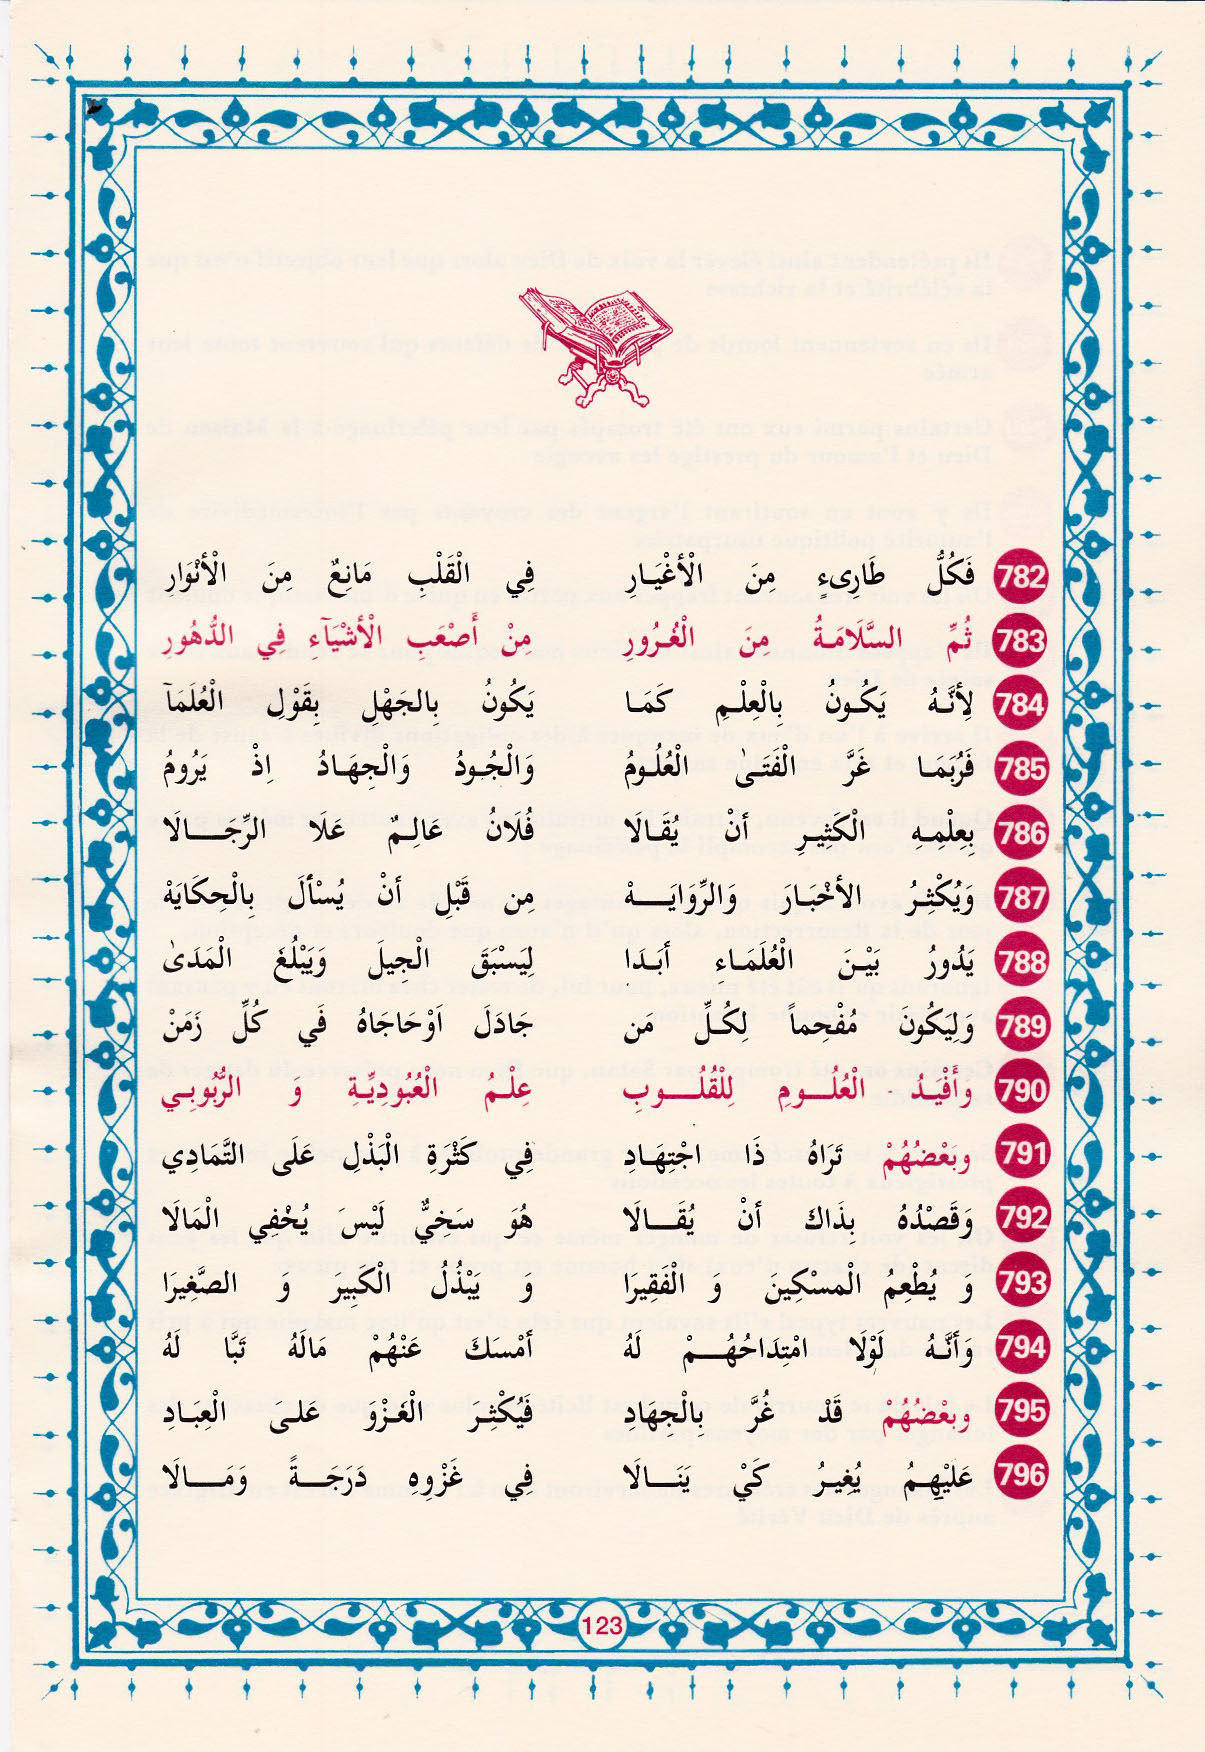 782 فَكُلُّ طَارِىءٍ مِنَ الْأغْبَـارِ فِي الْقَلْبِ مَانِعٌ مِنَ الْأنْوَارِ
783 ثُمَّ السَّلَامَـةُ مِنَ الْغُـرُورِ مِنْ أَصْعَبِ الْأشْيَآءِ فِي الدُّهُورِ
784 لِأنَّـهُ يَكُـونُ بِالْعِلْـمِ كَمَـا يَكُونُ بِالجَهْلِ بِقَوْلِ الْعُلَمَآ
785 فَرُبَمَـا غَرَّ الْفَتَـىٰ الْعُلُـومُ وَالْجُـودُ وَالْجِهَـادُ اِذْ يَرُومُ
786 بِعِلْمِـهِ الْكَثِيـرِ أنْ يُقَـالَا فُلَانُ عَالِـمٌ عَلَا الرِّجَـــالَا
787 وَيُكْثِـرُ الأخْبَـارَ وَالرِّوَايَـــهْ مِن قَبْلِ أنْ يُسْألَ بِالْحِكَايَهْ
788 يَدُورُ بَيْـنَ الْعُلَمَـاءِ أبَـدَا لِيَسْبَقَ الْجيلَ وَيَبْلُغَ الْمَدَىٰ
789 وَلِيَكُونَ مُفْحِماً لِكُـلِّ مَن جَادَلَ اَوْحَاجَاهُ فَي كُلِّ زَمَنْ
790 وَأَفْيَـدُ الْعُلُــومِ لِلْقُلُــوبِ عِلْـمُ الْعُبُودِيَّـةِ و الرُّبُوبِـي
791 وبَعْضُهُمْ تَرَاهُ ذَا اجْتِهَـادِ فِي كَثْرَةِ الْبَذْلِ عَلَى التَّمَادِي
792 وَقَصْدُهُ بِذَاكَ أنْ يُقَــالَا هُوَ سَخيٌّ لَيْسَ يُخْفِي الْمَالَا
793 وَ يُطْعِمُ الْمَسْكِينَ وَ الْفَقِيرَا وَ يَبْذُلُ الْكَبِيرَ وَ الصَّغِيرَا
794 وَأنَّـهُ لَوْلَا امْتِدَاحُهُــمْ لَهُ أمْسَكَ عَنْهُمْ مَالَهُ تَبًّا لَهُ
795 وبعْضُهُمْ قَدْ غُرَّ بِالْجَهَادِ فَيُكْثِـر الْغَزْوَ عَلـى الْعِبَـادِ
796 عَلَيْهِـمُ يُغِيـرُ كَيْ يَنَــالَا فِي غَزْوِهِ دَرَجَـــةً وَمَـــالَا
123